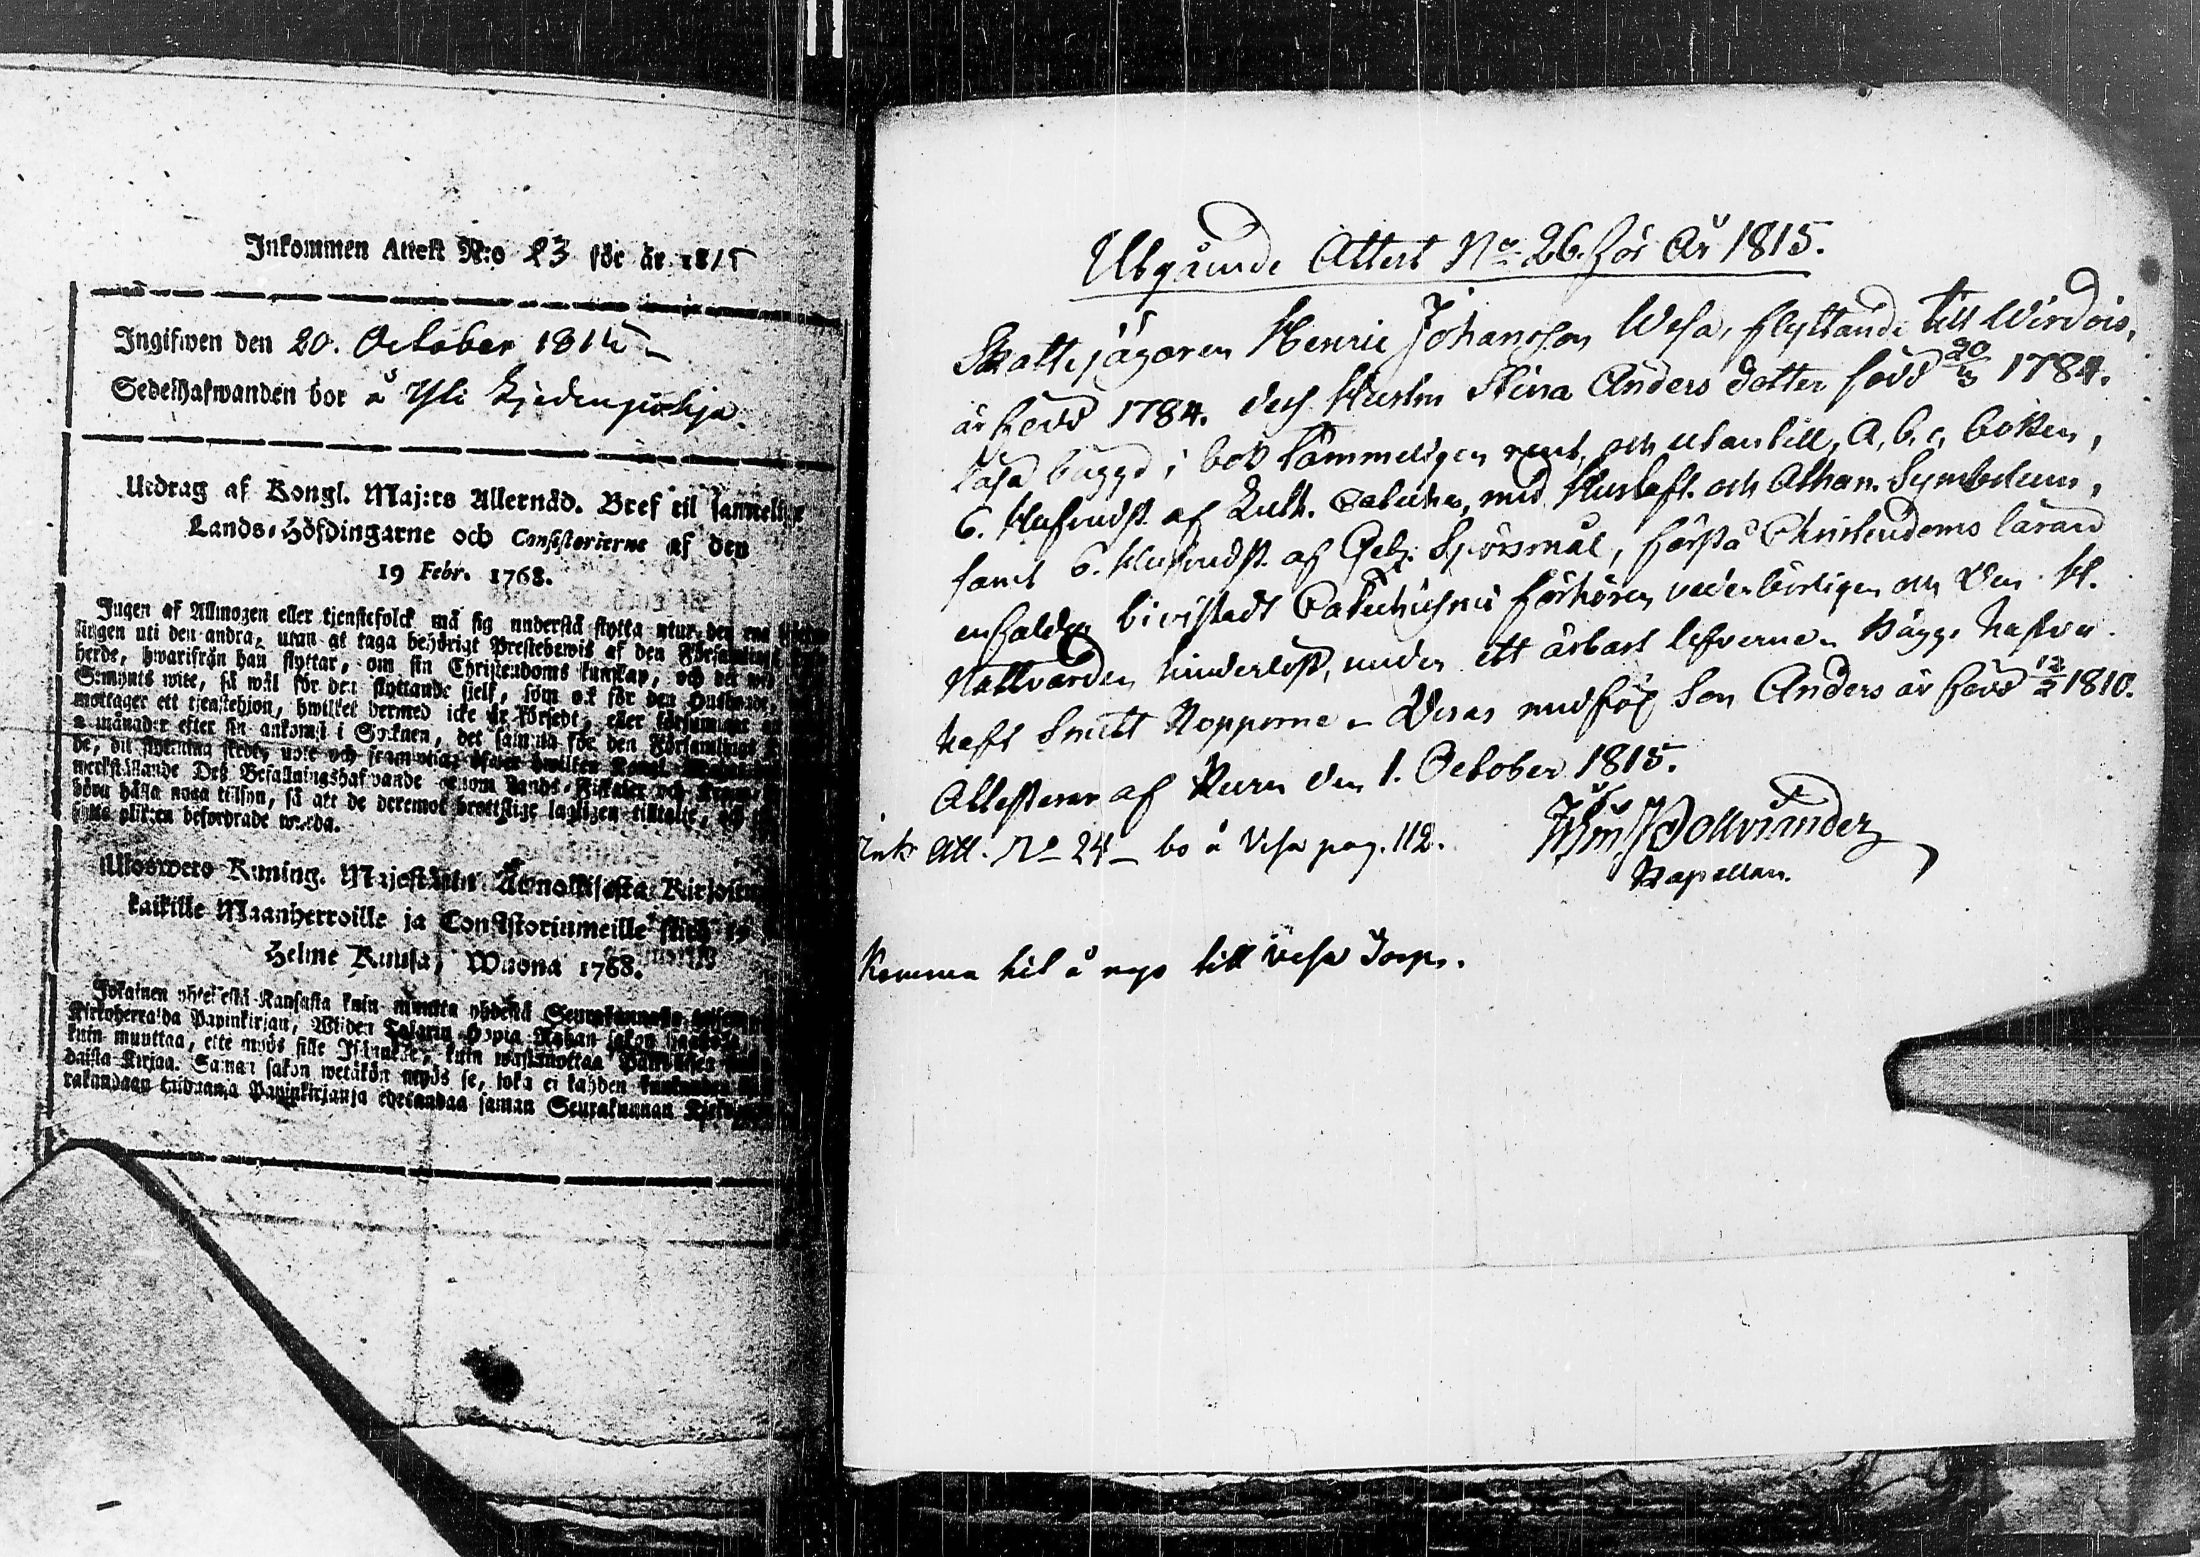 Inkommen Attest N:o 23 för år 1815
Ingifwen den 20. October 1815
Sedelhafwanden bor å Yli Kjedenpohja.
Utdrag af Kongl. Maj:ts Allernåd. Bref til samtelige
Lands-Höfdingarne och Consistorierne af den
19 Febr. 1768.
Ingen af Allmogen eller tjenstefolck må sig understå flytta utur den ena
uti den andra, utan at taga behörigt Prestebewis af den Församlings
herde, hwarifrån han flyttar, om sin Christendoms kunskap, och det wid
Semynts wite, så wäl för den flyttande sjelf, som ock för den Husbonde,
mottager ett tjenstehjon, hwilket dermed icke är försedt, eller försummar at
2 månader efter sin ankomst i Socknen, det samma för den Församlings
de, dit flyttning skedt, upte och
werkställande Des Befallningshafwande genom Lands-Fiskaler och
böra hålla noga tillsyn, så att de deremot brottslige lagligen tilltalte, och
plikten befordrade warda.
Ulosweto Kuning. Majestätin Armollisesta Kirjasta
kaikille Maanherroille ja Consistoriumeille
Helme Kuusa, Wuona 1768.
Jokainen yhteisestä Kansasta kuin muutta yhdestä Seurakunnasta
Kirkoherralda Papinkirjan, Wijden Talarin Hopia Rahan sakon
kuin muuttaa, ette myös sille Isännälle, kuin wastanottaa Palwelusen
daista Kirjaa. Saman sakon wetäkön myös se, joka ei kahden
rakundaan tuduansa Papinkirjansa edesandaa saman Seurakunnan
Utgående Attest No 26. för År 1815.
Skattejägaren Henric Johansson Wesa, flyttande till Wirdois,
är född 1784. dess Hustru Stina Anders dotter född 20/3 1784.
läsa bägge i bok tämmeligen rent, och utantill, A, b, c, boken,
6. Hufvudst. af Luth. Cateches, med Hustafl. och Athan. Symbolum,
samt 6. Hufvudst. af Geb. Spörsmål, förstå Christendoms läran
enfaldigt, bivistadt Catechismi förhören vederbörligen och Den H.
Nattvarden hinderlöst, under ett ärbart lefverne. Bägge hafva
haft Smitt Kopporne. Deras medfölj. Son Anders är född 12/2 1810.
Attesterar af Kuru den 1. October 1815.
ink Att. No 24 bo å Vesa pag. 112.
Kapellan.
Komma hit å nyo till Vesa Torp.